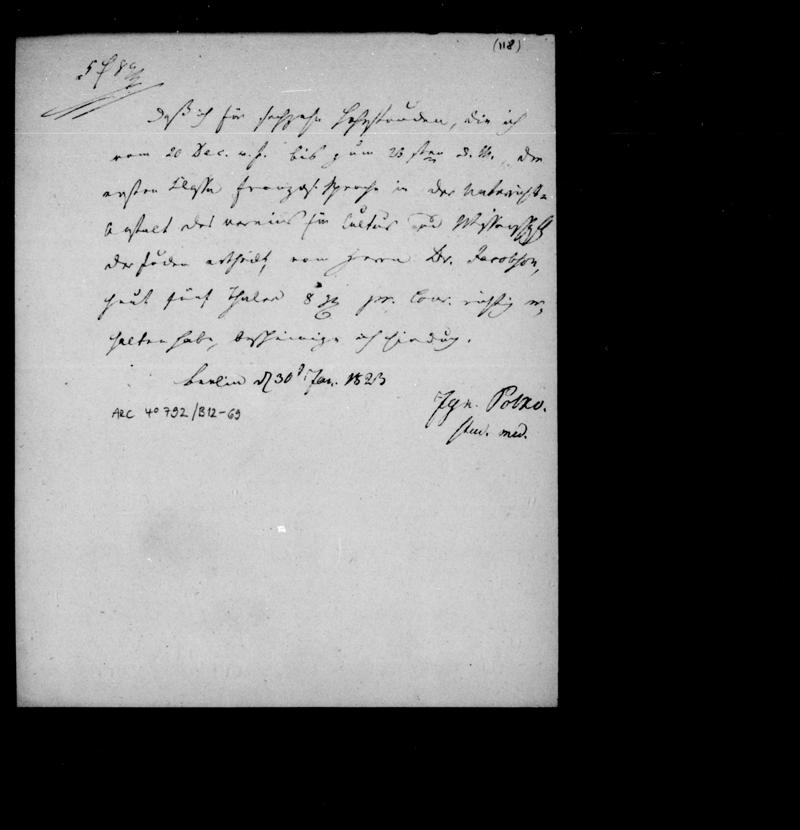 (118)
5 f 8
Daß ich für sechzehn Lehrstunden, die ich
vom 20 Dec. v. J. bis zum 26 sten d. M. der
ersten Classe französ. Sprache in der Unterrichts-
Anstalt des Vereins für Cultur und Wissenschaft
der Juden ertheilt, von Herrn Dr. Jacobson,
heut fünf Thaler 8 pr. Cour. richtig er-
halten habe, bescheinige ich hierdurch.
Berlin d 30 Jan. 1823
ARC 4° 792/B12-69
Ign.
stud. med.